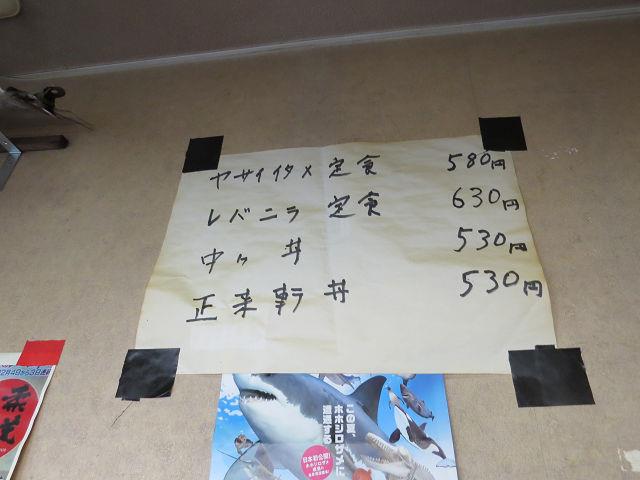 ヤサイイタメ定食 580円
レバニラ 定食 630円
中カ 丼 530円
正来軒丼 530円
この夏、
ホホジロザメに
遭遇する
日本初公開!